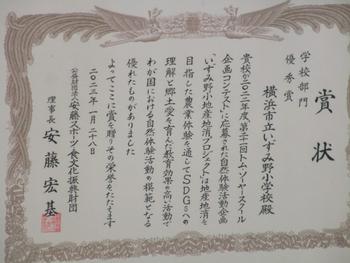 賞状
学校部門
優秀賞
横浜市立いずみ野小学校殿
貴校が二〇二二年度第二十一回トム・ソーヤースクール
企画コンテストに応募された自然体験活動企画
「いずみ野小地産地消プロジェクト」は地産地消を
目指した農業体験を通してSDGsへの
理解と郷土愛を育んだ教育効果の高い活動で
わが国における自然体験活動の模範となる
優れたものがありました
よってここに賞を贈りその栄誉をたたえます
二〇二三年一月二十八日
公益財団法人安藤スポーツ・食文化振興財団
理事長 安藤宏基